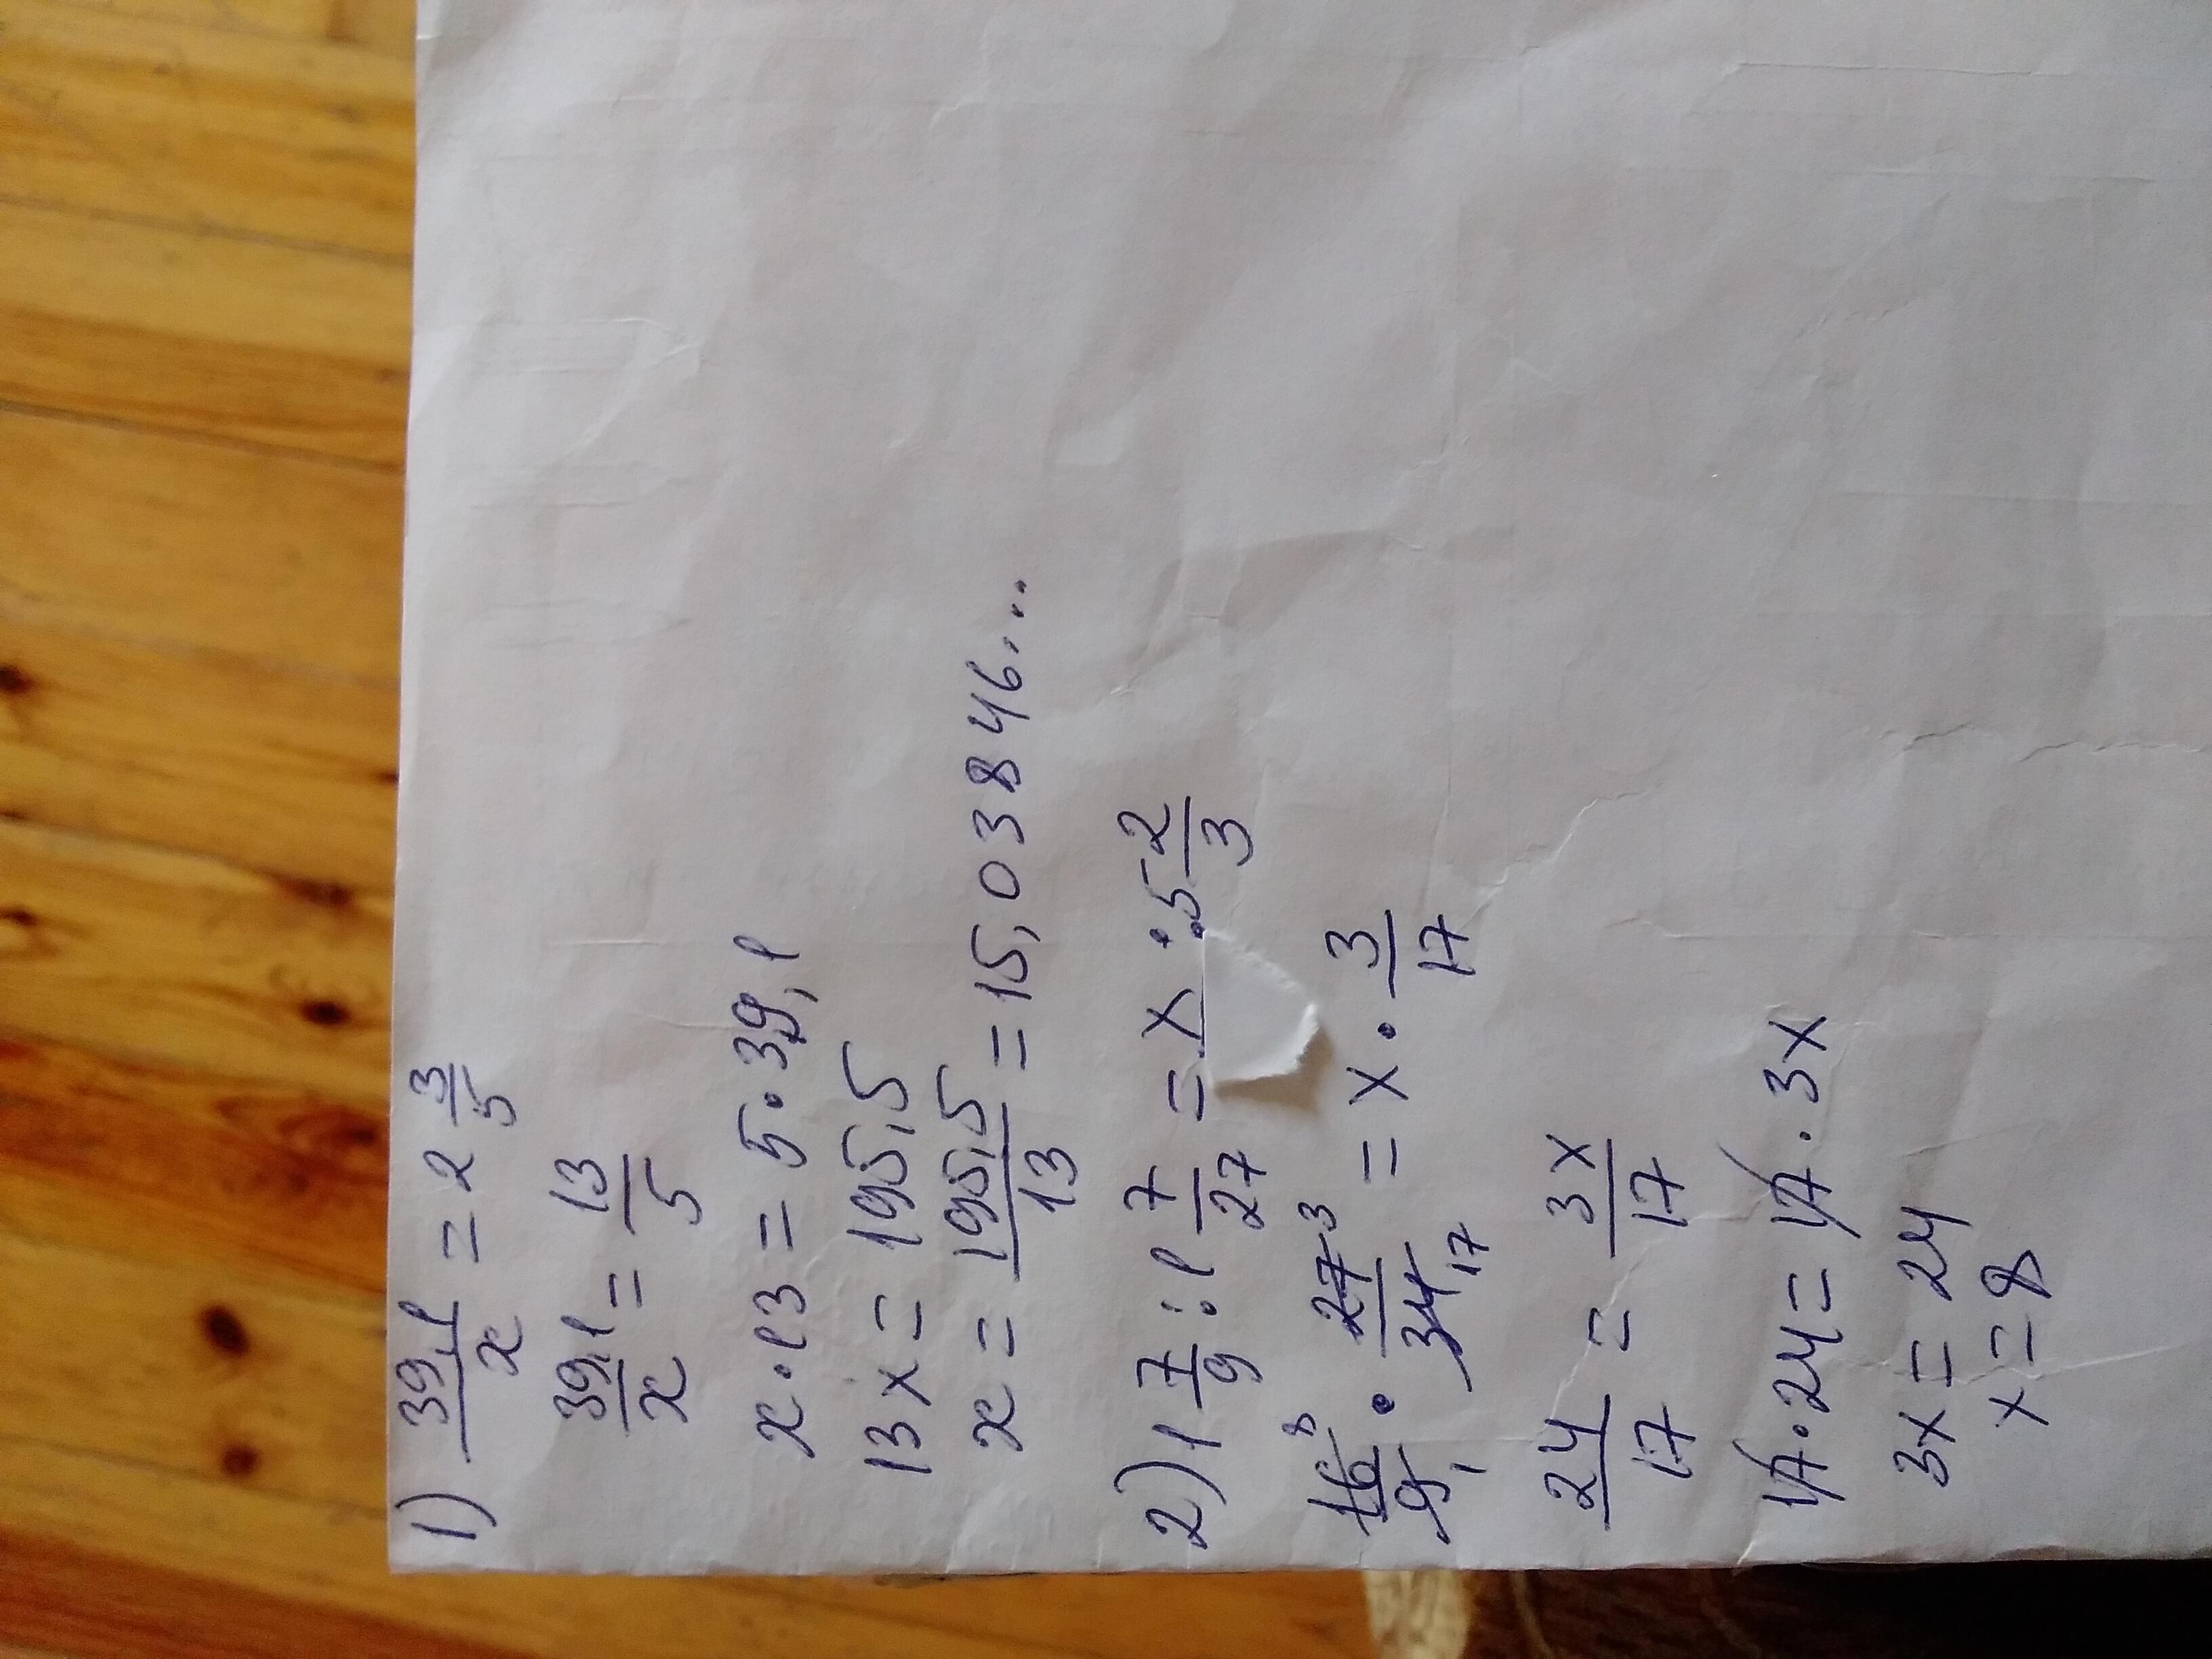 1) 39,1/x = 2 3/5
39,1/x = 13/5
x·13 = 5·39,1
13x = 195,5
x = 195,5/13 = 15,03846...
2) 1 7/9 : 1 7/27 = x : 5 2/3
16 8/9 1 · 27 3/34 17 = x · 3/17
24/17 = 3x/17
17·24 = 17·3x
3x = 24
x = 8